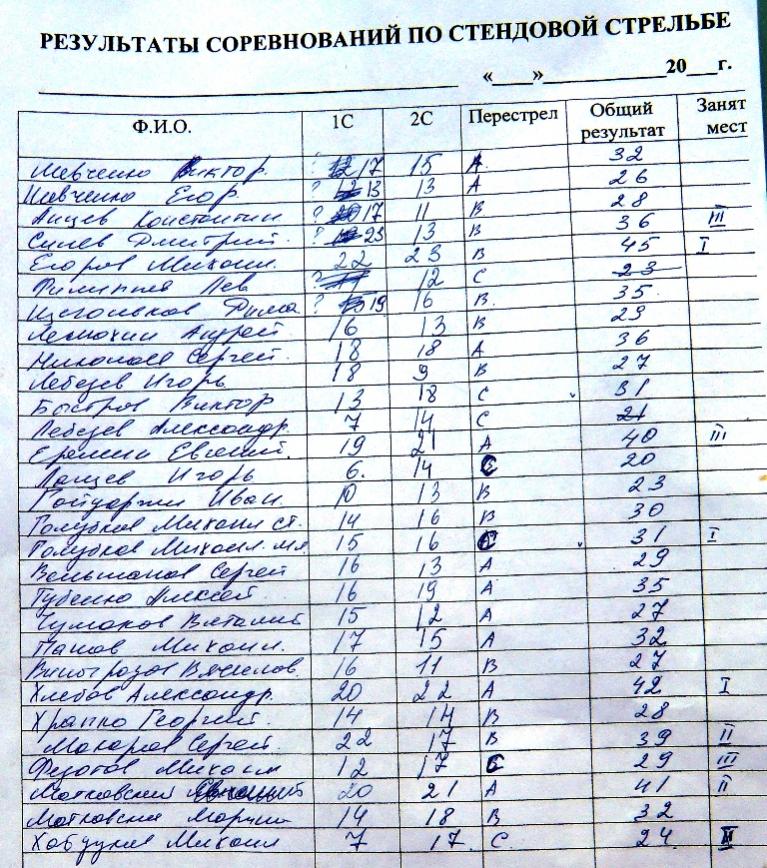 РЕЗУЛЬТАТЫ СОРЕВНОВАНИЙ ПО СТЕНДОВОЙ СТРЕЛЬБЕ
«____»____________20___г.
Ф.И.О. 1С 2С Перестрел Общий результат Занят мест
Шевченко Виктор ? 17 15 А 32
Шевченко Егор ? 13 13 А 26
Константин ? 17 11 В 28
Дмитрий ? 23 13 В 36 III
Егоров Михаил 22 23 В 45 I
Филиппов Лев ? 11 12 С 23
Дима ? 19 16 В 35
Андрей 16 13 В 29
Николаев Сергей 18 18 А 36
Лебедев Игорь 18 9 В 27
Быстров Виктор 13 18 С 31
Лебедев Александр 7 14 С 21
Еремин Евгений 19 21 А 40 III
Игорь 6 14 С 20
Иван 10 13 В 23
Голубков Михаил ст. 14 16 В 30
Голубков Михаил мл. 15 16 С 31 I
Сергей 16 13 А 29
Губенко Алексей 16 19 А 35
Чумаков Виталий 15 12 А 27
Панов Михаил 17 15 А 32
Виноградов Вячеслав 16 11 В 27
Хлебов Александр 20 22 А 42 I
Храпко Георгий 14 14 В 28
Макаров Сергей 22 17 В 39 II
Федотов Михаил 12 17 С 29 III
Матковский 20 21 А 41 II
Матковский 14 18 В 32
Михаил 7 17 С 24